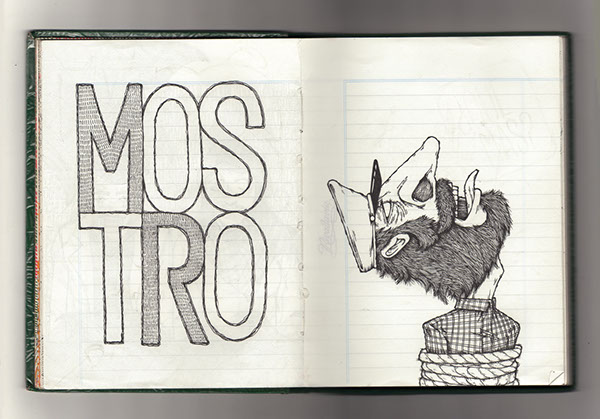 MOS
TRO